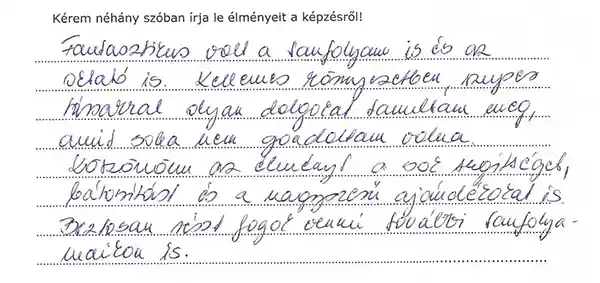 Kérem néhány szóban írja le élményeit a képzésről!
Fantasztikus volt a tanfolyam is és az
oktató is. Kellemes környezetben, szuper
tanárral olyan dolgokat tanultam meg,
amit soha nem gondoltam volna.
Köszönöm az élményt a sok segítséget,
bátorítást és a nagyszerű ajándékokat is.
Biztosan részt fogok venni további tanfolya-
maikon is.